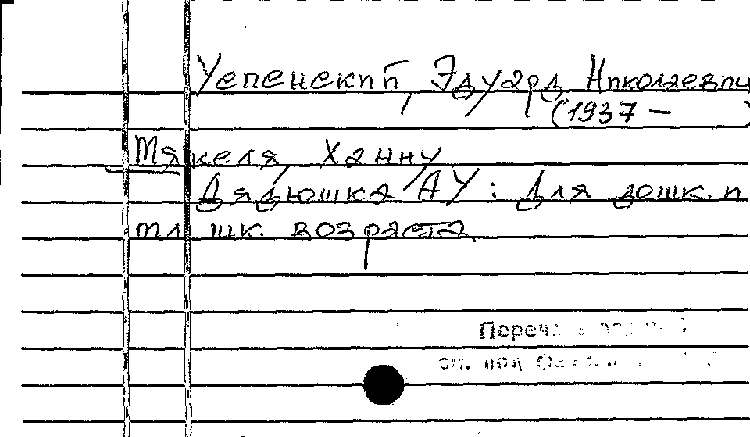 Успенский, Эдуард Николаевич
(1937 — )
Мякеля, Ханну
Дядюшка АУ : Для дошк. и
мл. шк. возраста